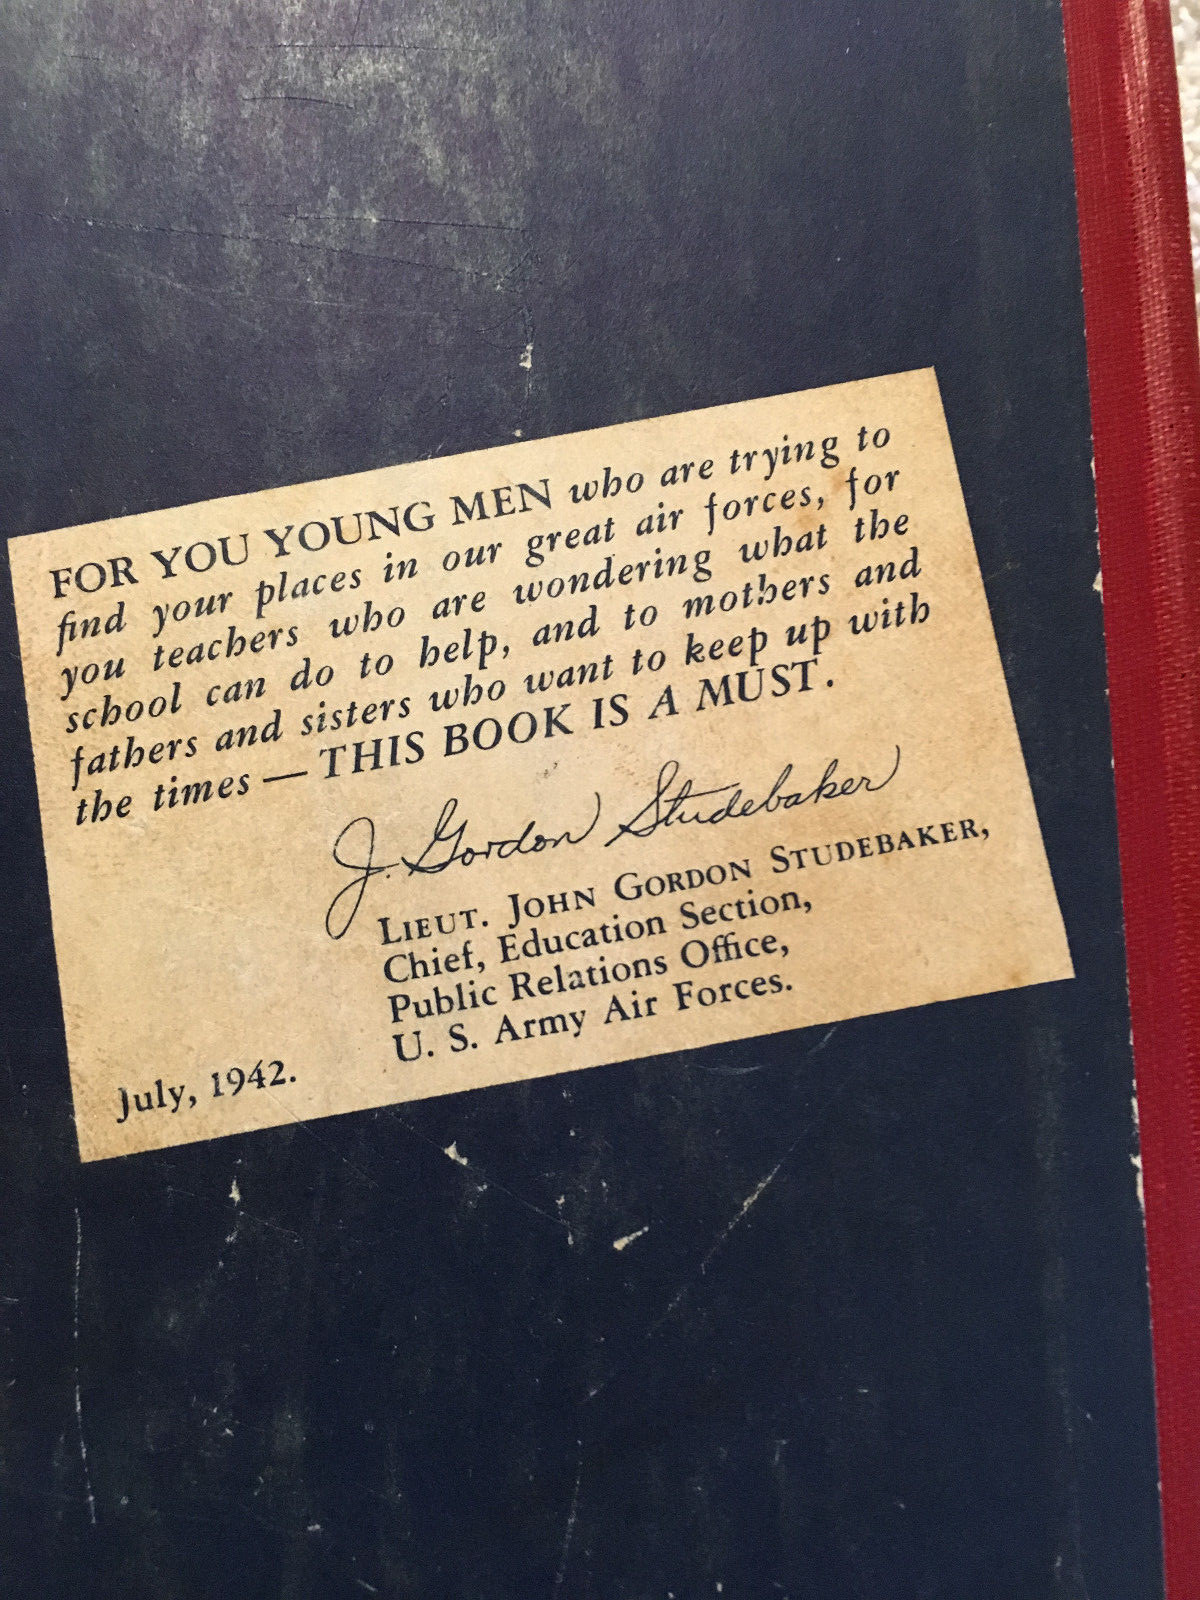 FOR YOU YOUNG MEN who are trying to
find your places in our great air forces, for
you teachers who are wondering what the
school can do to help, and to mothers and
fathers and sisters who want to keep up with
the times — THIS BOOK IS A MUST.
J. Gordon Studebaker
LIEUT. JOHN GORDON STUDEBAKER,
Chief, Education Section,
Public Relations Office,
U. S. Army Air Forces.
July, 1942.